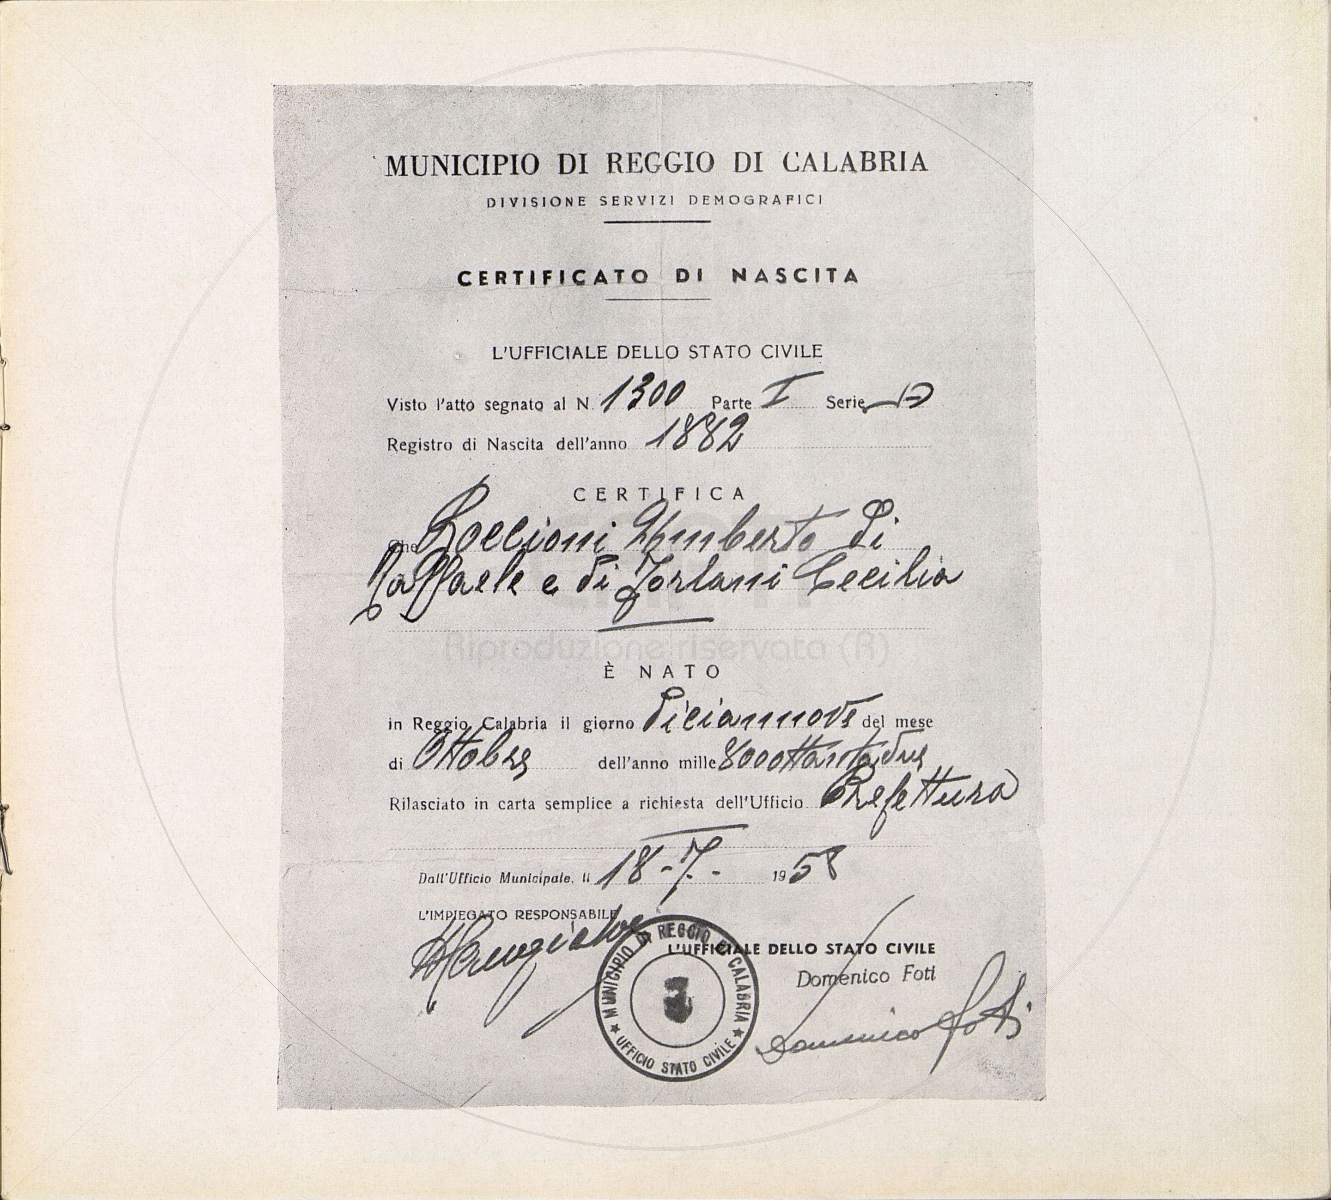 MUNICIPIO DI REGGIO DI CALABRIA
DIVISIONE SERVIZI DEMOGRAFICI
CERTIFICATO DI NASCITA
L'UFFICIALE DELLO STATO CIVILE
Visto l'atto segnato al N. 1300 Parte I Serie
Registro di Nascita dell'anno 1882
CERTIFICA
Che Boccioni Umberto di
Raffaele e di Forlani Cecilia
Riproduzione riservata (R)
È NATO
in Reggio Calabria il giorno diciannove del mese
di Ottobre dell'anno mille 800ottantadue
Rilasciato in carta semplice a richiesta dell'Ufficio Prefettura
Dall'Ufficio Municipale, li 18-7- 1958
L'IMPIEGATO RESPONSABILE
MUNICIPIO DI REGGIO DI CALABRIA
UFFICIO STATO CIVILE
L'UFFICIALE DELLO STATO CIVILE
Domenico Foti
Domenico Foti